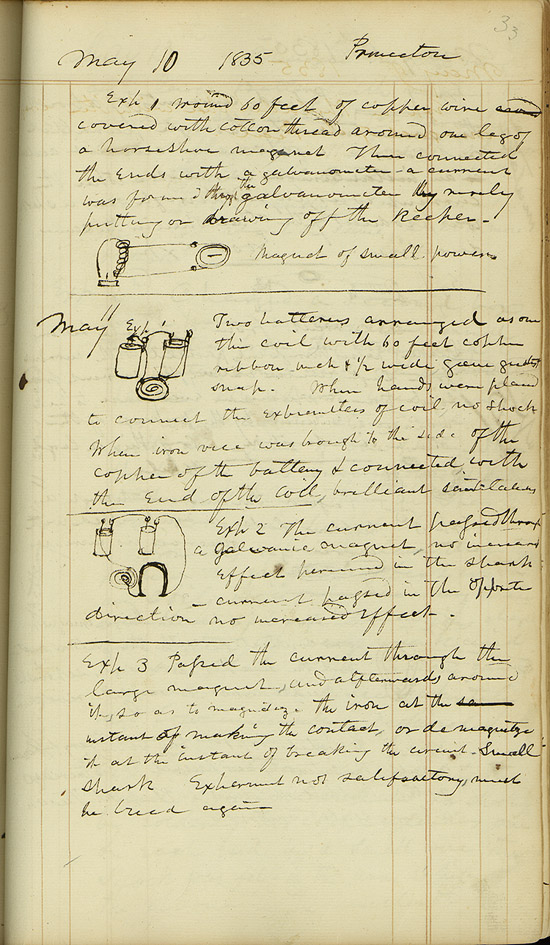 33
May 10 1835 Princeton
Exp 1 wound 60 feet of copper wire
covered with cotton thread around one leg of
a horseshoe magnet Then connected
the ends with a galvanometer - a current
was formed thro the galvanometer by merely
putting on drawing off the keeper -
Magnet of small power
May 11 Exp 1 Two batteries arranged as one
this coil with 60 feet copper
ribbon inch & 1/2 wide gave
snap. When hands were placed
to connect the extremities of coil no shock
When iron vice was brough to the side of the
copper of the battery & connected with
the End of the Coil, brilliant
Exp 2 The current passed through
a Galvanic magnet, no increased
effect perceived in the spark
- current passed in the opposite
direction no increased effect -
Exp 3 Passed the current through the
large magnet, and afterwards around
it, so as to magnetize the iron at the
instant of making the contact, or demagnetize
it at the instant of breaking the circuit - Small
spark Experiment not satisfactory, must
be tried again